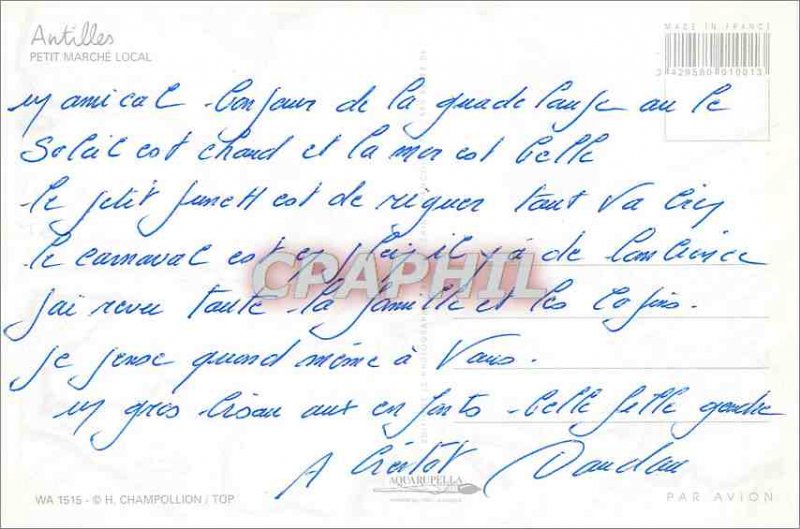 Antilles
PETIT MARCHÉ LOCAL
MADE IN FRANCE
3 429580 010013
un amical bonjour de la guadeloupe au le
Soleil est chaud et la mer est belle
le petit punch est de riguer tout va bien
le carnaval est en plein il y a de l'ambience
j'ai revu toute la famille et les copins.
je pense quand même à Vous.
un gros bisou aux enfants belle fille gendre
A bientôt Doudou
CPAPHIL
AQUARUPELLA
WA 1515 - © H. CHAMPOLLION / TOP
PAR AVION